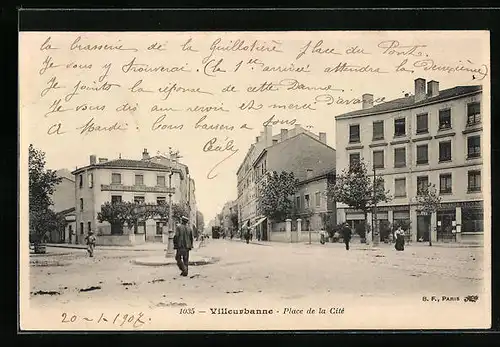 la brasserie de la Guillotière place du Pont.
Je vous y trouverai. (Le 1er arrivé attendra le Deuxième)
Je joints la réponse de cette Dame
Je vous dis au revoir et merci d'avance
à Mardi. Bons baisers à tous
Cécile
1035 - Villeurbanne - Place de la Cité
B. F., PARIS
20-1-1907.